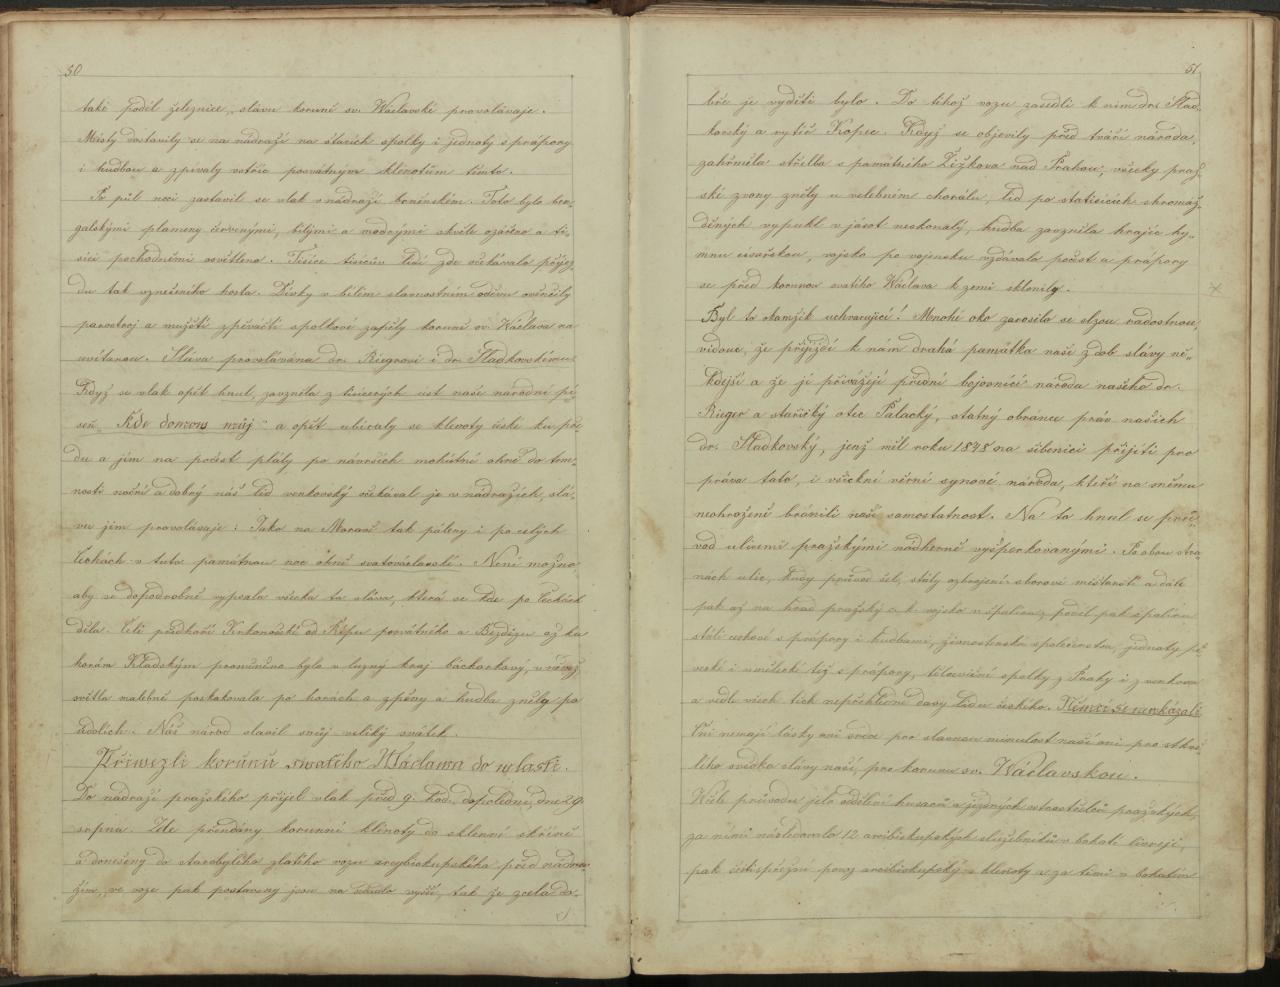 50
také podél železnice, slávu koruně sv. Václavské provolávaje.
Místy dostavily se na nádraží na stacích spolky i jednoty s prápory
i hudbou a zpívaly vstříc posvátným klenotům těmto.
Po půl noci zastavil se vlak v nádraží brněnském. Toto bylo ben-
galskými plameny červenými, bílými a modrými skvěle ozářeno a ti-
síci pochodněmi osvětleno. Tisíce tisícův lidí zde očekávalo příjez-
du tak vznešeného hosta. Dívky v bílém slavnostním oděvu ověnčily
parostroj a mužští zpěváčtí spolkové zapěly koruně sv. Václava na
uvítanou. Sláva provolávána dr. Riegrovi i dr. Sladkovskému.
Když se vlak opět hnul, zavzněla z tisícerých úst naše národní pí-
seň „Kde domov můj" a opět ubíraly se klenoty české ku pře-
du a jim na počest plály po návrších mohutné ohně do tem-
nosti noční a dobrý náš lid venkovský očekával je v nádražích, slá-
vu jim provolávaje: Jako na Moravě tak páleny i po celých
Čechách v tuto památnou noc ohně svatováclavské. Není možno
aby se dopodrobně vypsala všecka ta sláva, která se kde po Čechách
děla. Celé předhoří Krkonošské od Řípu posvátného a Bezdězu až ku
horám Kladským proměněno bylo v luzný kraj báchorkový, v němž
světla malebně poskakovala po horách a zpěvy a hudba zněly po
údolích. Náš národ slavil svůj veliký svátek.
Přiwezli korunu swatého Wáclawa do wlasti.
Do nádraží pražského přijel vlak před 9. hod. dopoledne, dne 29.
srpna. Zde přendány korunní klenoty do sklenné skříně
a doneseny do starobylého zlatého vozu arcybiskupského před nádra-
žím, ve voze pak postaveny jsou na sedadlo vyšší, tak že zcela do-
51
bře je viděti bylo. Do téhož vozu zasedli k nim dr. Slad-
kovský a rytíř Kopec. Když se objevily před tváří národa,
zahřměla střelba s památného Žižkova nad Prahou, všecky praž-
ské zvony zněly u velebném chorálu, lid po statisících shromáž-
děných vypukl v jásot neskonalý, hudba zavzněla hrajíc hy-
mnu císařskou, vojsko po vojensku vzdávalo počest a prápory
se před korunou svatého Václava k zemi sklonily.
Byl to okamžik uchvacující! Mnohé oko zarosilo se slzou radostnou,
vidouc, že přijíždí k nám drahá památka naše z dob slávy ně-
kdejší a že ji přivážejí přední bojovníci národa našeho dr.
Rieger a stařičký otec Palacký, statný obránce práv našich
dr. Sladkovský, jenž měl roku 1848 na šibenici přijíti pro
práva tato, i všickni věrní synové národa, kteří na sněmu
neohroženě bránili naši samostatnost. Na to hnul se prů-
vod ulicemi pražskými nádherně vyšperkovanými. Po obou stra-
nách ulic, kudy průvod šel, stály ozbrojené sborové městanstí a dále
pak až na hrad pražský c. k. vojsko v špalíru, podél pak špalíru
stáli cechové s prápory i hudbami, živnostenská společenstva, jednoty pě-
vecké i umělecké též s prápory, tělocvičné spolky z Prahy i z venkova
a vedle všech těch nepřehledné davy lidu českého. Němci se neukázali.
Oni nemají lásky ani srdce pro slavnou minulost naši ani pro stkvě-
lého svědka slávy naší, pro korunu sv. Wáclavskou.
W čele průvodu jelo oddělení husarů a jízdných ostrostřelců pražských,
za nimi následovalo 12 arcibiskupských služebníků v bohaté livreji,
pak šestispřežní povoz arcibiskupský s klenoty a za tímto v bohatém